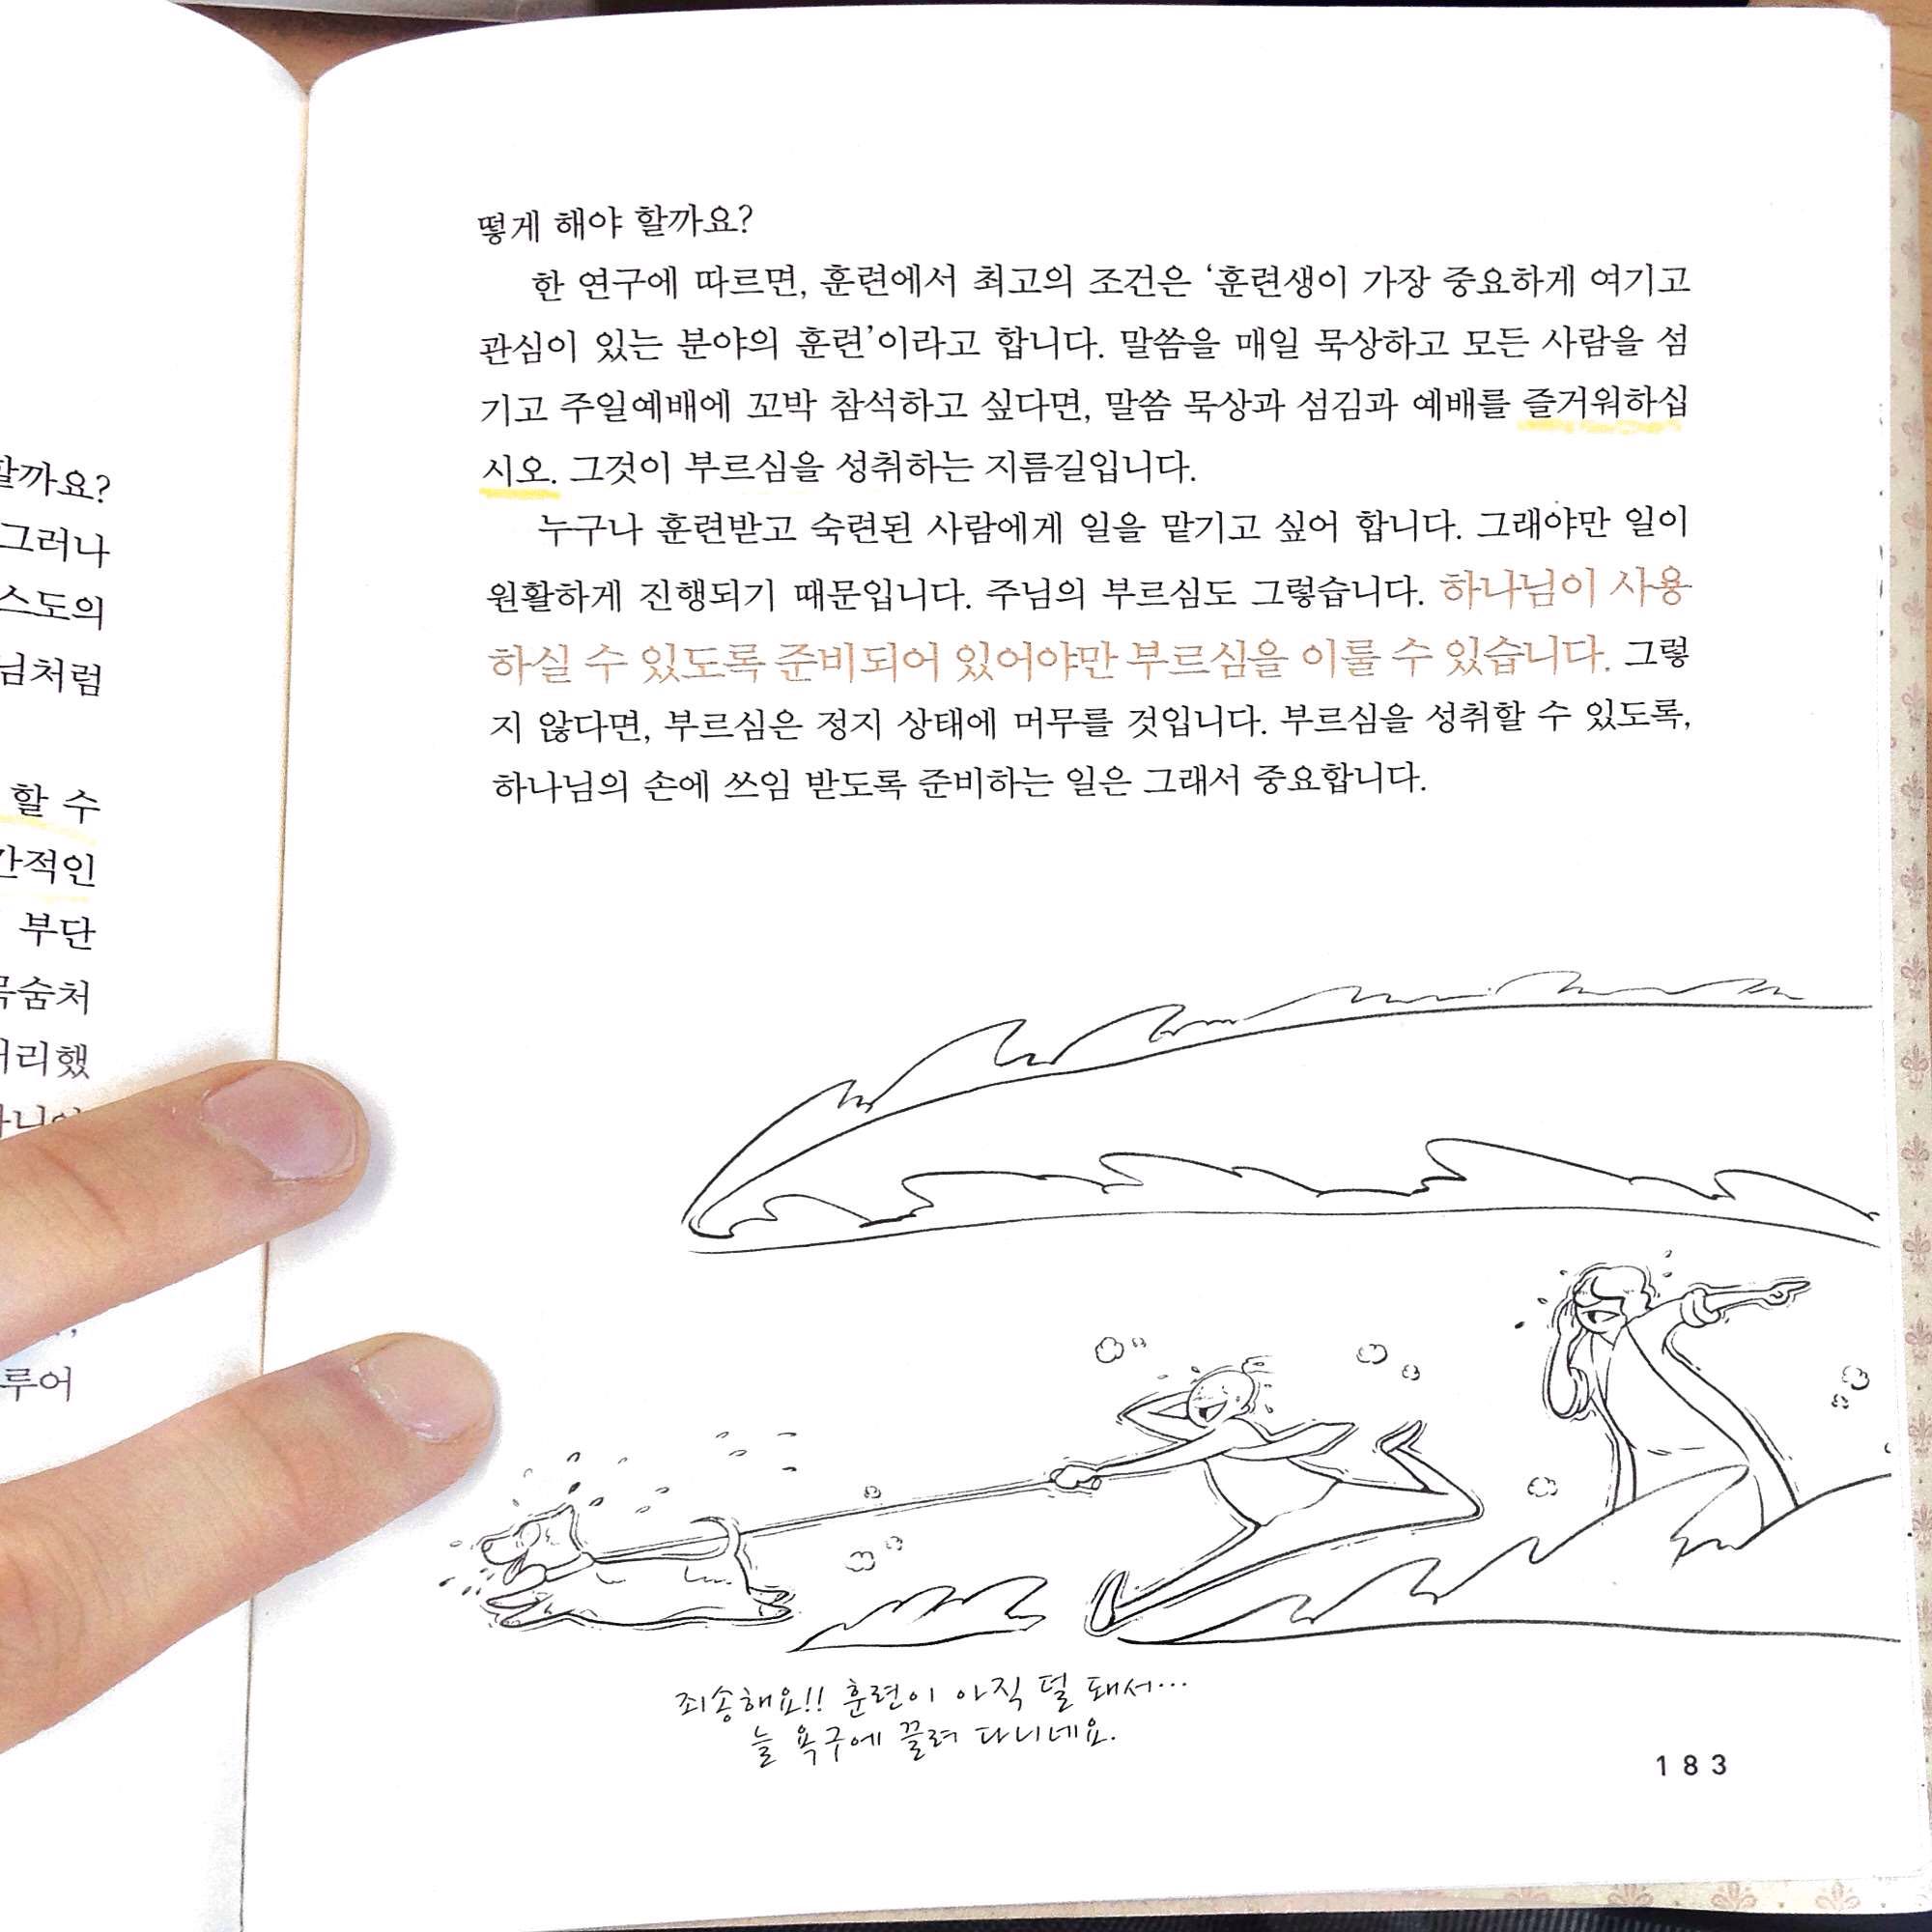 할까요?
그러나
스도의
님처럼
할 수
간적인
부단
목숨처
루어
떻게 해야 할까요?
한 연구에 따르면, 훈련에서 최고의 조건은 ‘훈련생이 가장 중요하게 여기고
관심이 있는 분야의 훈련’이라고 합니다. 말씀을 매일 묵상하고 모든 사람을 섬
기고 주일예배에 꼬박 참석하고 싶다면, 말씀 묵상과 섬김과 예배를 즐거워하십
시오. 그것이 부르심을 성취하는 지름길입니다.
누구나 훈련받고 숙련된 사람에게 일을 맡기고 싶어 합니다. 그래야만 일이
원활하게 진행되기 때문입니다. 주님의 부르심도 그렇습니다. 하나님이 사용
하실 수 있도록 준비되어 있어야만 부르심을 이룰 수 있습니다. 그렇
지 않다면, 부르심은 정지 상태에 머무를 것입니다. 부르심을 성취할 수 있도록,
하나님의 손에 쓰임 받도록 준비하는 일은 그래서 중요합니다.
죄송해요!! 훈련이 아직 덜 돼서…
늘 욕구에 끌려 다니네요.
183